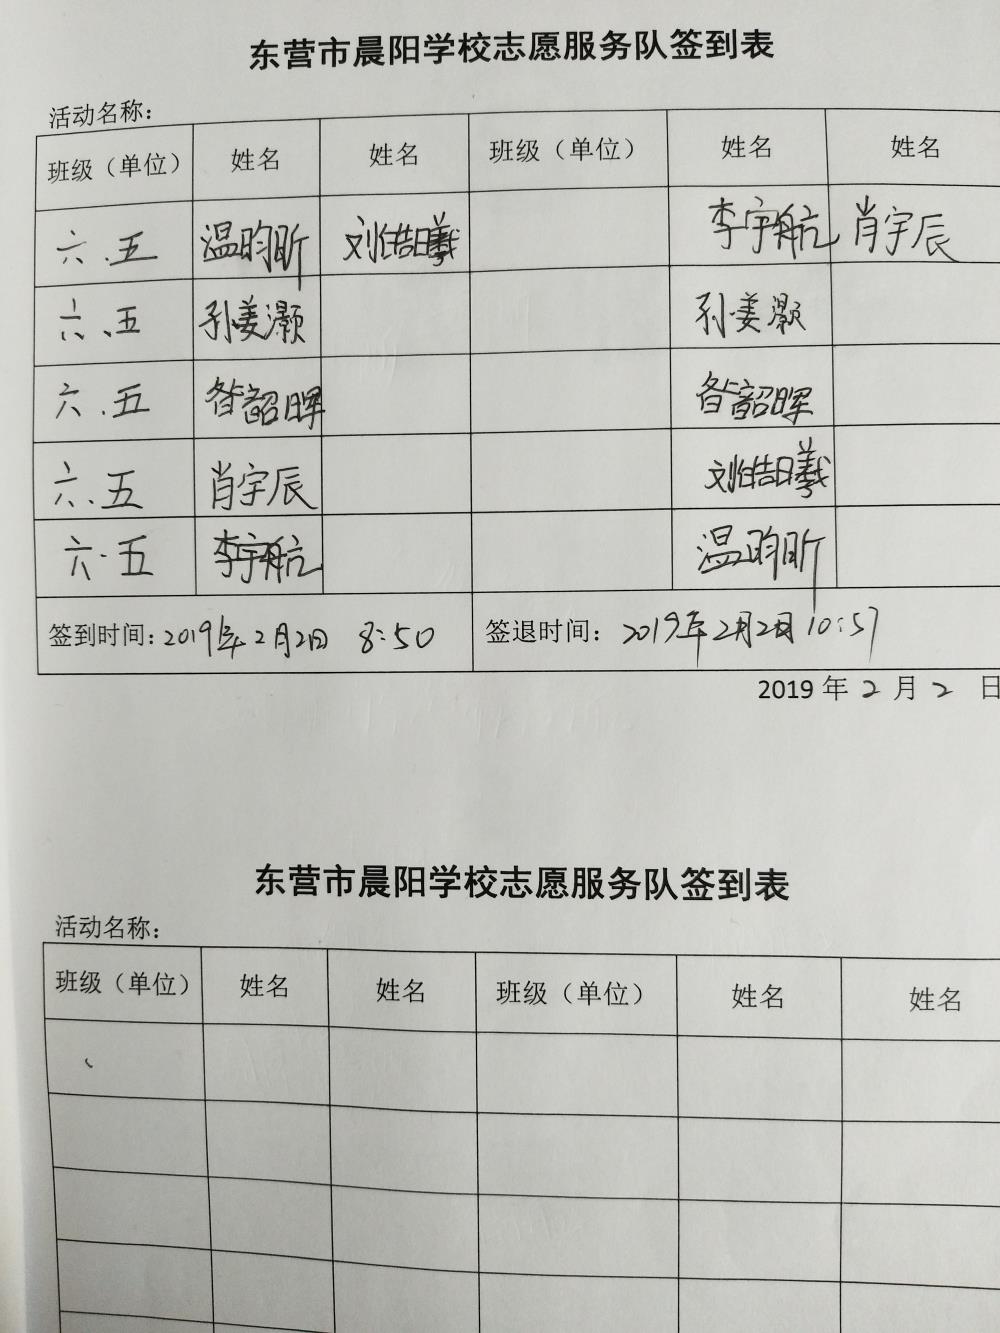 东营市晨阳学校志愿服务队签到表
活动名称：
班级（单位） 姓名 姓名 班级（单位） 姓名 姓名
六.五 温昀昕 刘皓曦 李宇航 肖宇辰
六、五 孙姜灏 孙姜灏
六.五 昝韶晖 昝韶晖
六.五 肖宇辰 刘皓曦
六.五 李宇航 温昀昕
签到时间：2019年2月2日 8:50 签退时间：2019年2月2日10:57
2019 年 2 月 2 日
东营市晨阳学校志愿服务队签到表
活动名称：
班级（单位） 姓名 姓名 班级（单位） 姓名 姓名